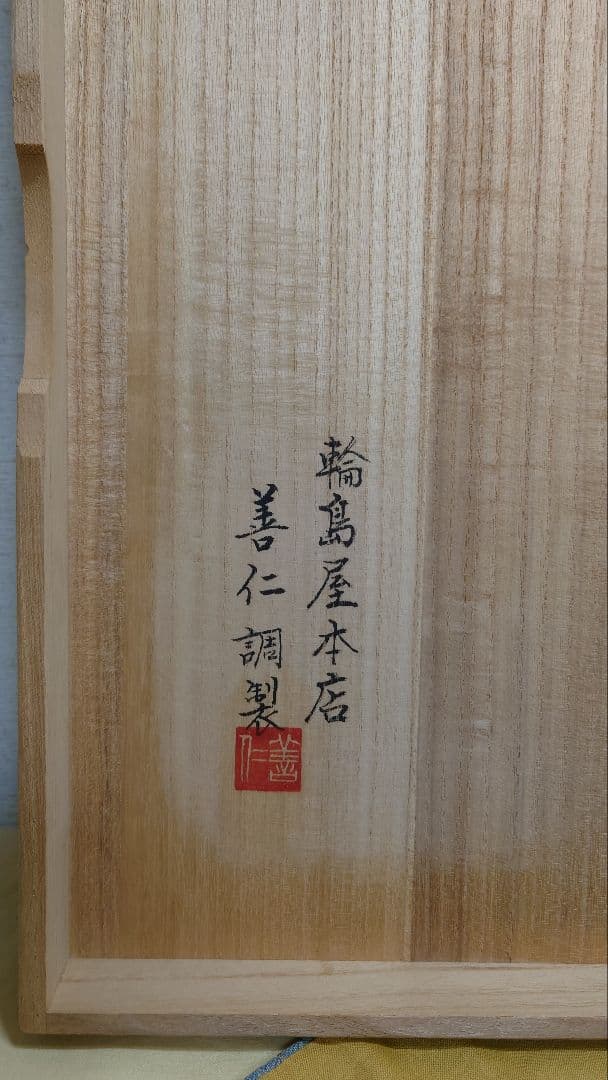 輪島屋本店
善仁調製
善仁